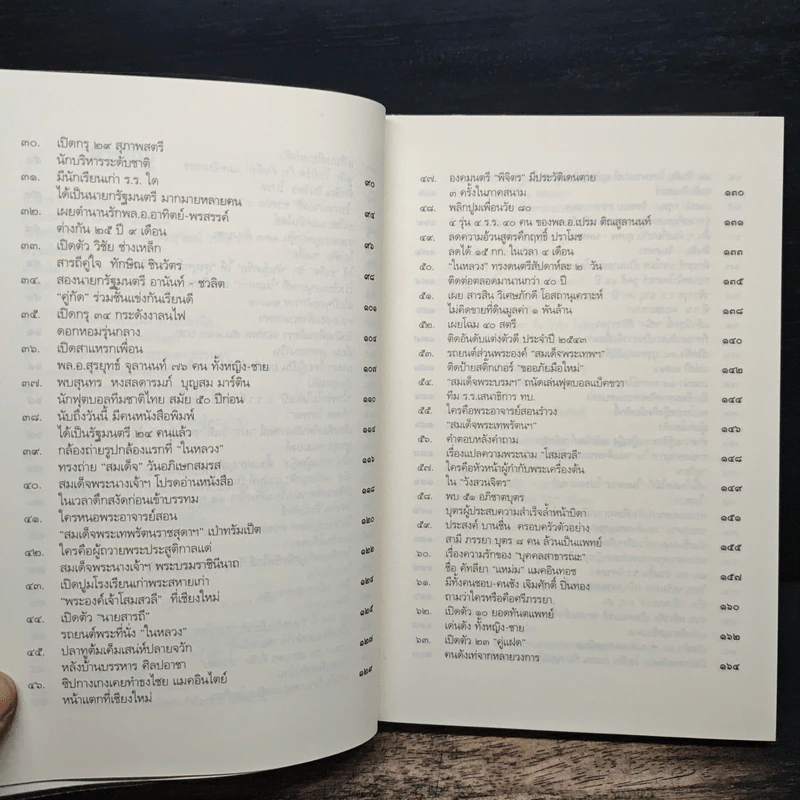 ๓๐. เปิดกรุ ๒๙ สุภาพสตรี
นักบริหารระดับชาติ ๙๐
๓๑. มีนักเรียนเก่า ร.ร. ใด
ได้เป็นนายกรัฐมนตรี มากมายหลายคน ๙๔
๓๒. เผยตำนานรักพล.อ.อาทิตย์-พรสรรค์
ต่างกัน ๒๕ ปี ๙ เดือน ๙๖
๓๓. เปิดตัว วิชัย ช่างเหล็ก
สารถีคู่ใจ ทักษิณ ชินวัตร ๙๘
๓๔. สองนายกรัฐมนตรี อานันท์ - ชวลิต
"คู่กัด" ร่วมชั้นแข่งกันเรียนดี ๑๐๑
๓๕. เปิดกรุ ๓๔ กระดังงาลนไฟ
ดอกหอมรุ่นกลาง ๑๐๓
๓๖. เปิดสาแหรกเพื่อน
พล.อ.สุรยุทธ์ จุลานนท์ ๗๖ คน ทั้งหญิง-ชาย ๑๐๗
๓๗. พบสุนทร หงสลดารมภ์ บุญสม มาร์ติน
นักฟุตบอลทีมชาติไทย สมัย ๕๐ ปีก่อน ๑๑๐
๓๘. นับถึงวันนี้ มีคนหนังสือพิมพ์
ได้เป็นรัฐมนตรี ๒๔ คนแล้ว ๑๑๔
๓๙. กล้องถ่ายรูปกล้องแรกที่ "ในหลวง"
ทรงถ่าย "สมเด็จ" วันอภิเษกสมรส ๑๑๖
๔๐. สมเด็จพระนางเจ้าฯ โปรดอ่านหนังสือ
ในเวลาดึกสงัดก่อนเข้าบรรทม ๑๑๘
๔๑. ใครหนอพระอาจารย์สอน
"สมเด็จพระเทพรัตนราชสุดาฯ" เป่าทรัมเป็ต ๑๒๐
๔๒. ใครคือผู้ถวายพระประสูติกาลแด่
สมเด็จพระนางเจ้าฯ พระบรมราชินีนาถ ๑๒๒
๔๓. เปิดปูมโรงเรียนเก่าพระสหายเก่า
"พระองค์เจ้าโสมสวลี" ที่เชียงใหม่ ๑๒๔
๔๔. เปิดตัว "นายสารถี"
รถยนต์พระที่นั่ง "ในหลวง" ๑๒๕
๔๕. ปลาทูต้มเค็มเสน่ห์ปลายจวัก
หลังบ้านบรรหาร ศิลปอาชา ๑๒๗
๔๖. ซิปกางเกงเคยทำธงไชย แมคอินไตย์
หน้าแตกที่เชียงใหม่ ๑๒๙
๔๗. องคมนตรี "พิจิตร" มีประวัติเดนตาย
๓ ครั้งในภาคสนาม ๑๓๐
๔๘. พลิกปูมเพื่อนวัย ๘๐
๔ รุ่น ๔ ร.ร. ๔๐ คน ของพล.อ.เปรม ติณสูลานนท์ ๑๓๑
๔๙. ลดความอ้วนสูตรคึกฤทธิ์ ปราโมช
ลดได้ ๑๕ กก. ในเวลา ๔ เดือน ๑๓๓
๕๐. "ในหลวง" ทรงดนตรีสัปดาห์ละ ๒ วัน
ติดต่อตลอดมานานกว่า ๔๐ ปี ๑๓๕
๕๑. เผย สารสิน วิเศษภักดี โอสถานุเคราะห์
ไม่คิดขายที่ดินมูลค่า ๑ พันล้าน ๑๓๘
๕๒. เผยโฉม ๔๐ สตรี
ติดอันดับแต่งตัวดี ประจำปี ๒๕๔๓ ๑๔๐
๕๓. รถยนต์ส่วนพระองค์ "สมเด็จพระเทพฯ"
ติดป้ายสติ๊กเกอร์ "ขออภัยมือใหม่" ๑๔๒
๕๔. "สมเด็จพระบรมฯ" ถนัดเล่นฟุตบอลแบ็คขวา
ทีม ร.ร.เสนาธิการ ทบ. ๑๔๔
๕๕. ใครคือพระอาจารย์สอนรำวง
"สมเด็จพระเทพรัตนฯ" ๑๔๖
๕๖. คำตอบหลังคำถาม
เรื่องแปลความพระนาม "โสมสวลี" ๑๔๘
๕๗. ใครคือหัวหน้าผู้กำกับพระเครื่องต้น
ใน "วังสวนจิตร" ๑๔๙
๕๘. พบ ๕๑ อภิชาตบุตร
บุตรผู้ประสบความสำเร็จล้ำหน้าบิดา ๑๕๑
๕๙. ประสงค์ บานชื่น ครอบครัวตัวอย่าง
สามี ภรรยา บุตร ๘ คน ล้วนเป็นแพทย์ ๑๕๕
๖๐. เรื่องความรักของ "บุคคลสาธารณะ"
ชื่อ คัทลียา "แหม่ม" แมคอินทอช ๑๕๗
๖๑. มีทั้งคนชอบ-คนชัง เจิมศักดิ์ ปิ่นทอง
ถามว่าใครหรือคือศรีภรรยา ๑๖๐
๖๒. เปิดตัว ๑๐ ยอดทันตแพทย์
เด่นดัง ทั้งหญิง-ชาย ๑๖๒
๖๓. เปิดตัว ๒๓ "คู่แฝด"
คนดังเท่จากหลายวงการ ๑๖๔